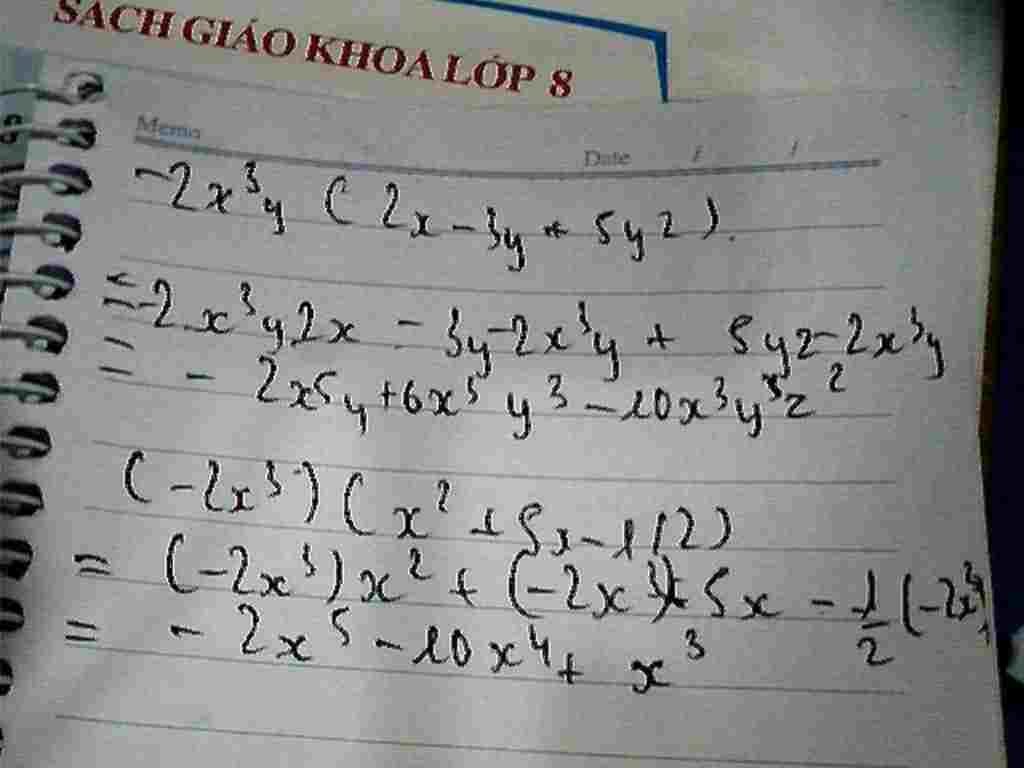 SÁCH GIÁO KHOA LỚP 8
Memo
Date / /
-2x³y (2x - 3y + 5yz).
= -2x³y2x - 3y-2x³y + 5yz-2x³y
= - 2x5y + 6x³ y³ - 10x³y³z²
(-2x³) (x² + 5x - 1/2)
= (-2x³)x² + (-2x³)+ 5x - 1/2 (-2x³)
= - 2x⁵ - 10x⁴ + x³